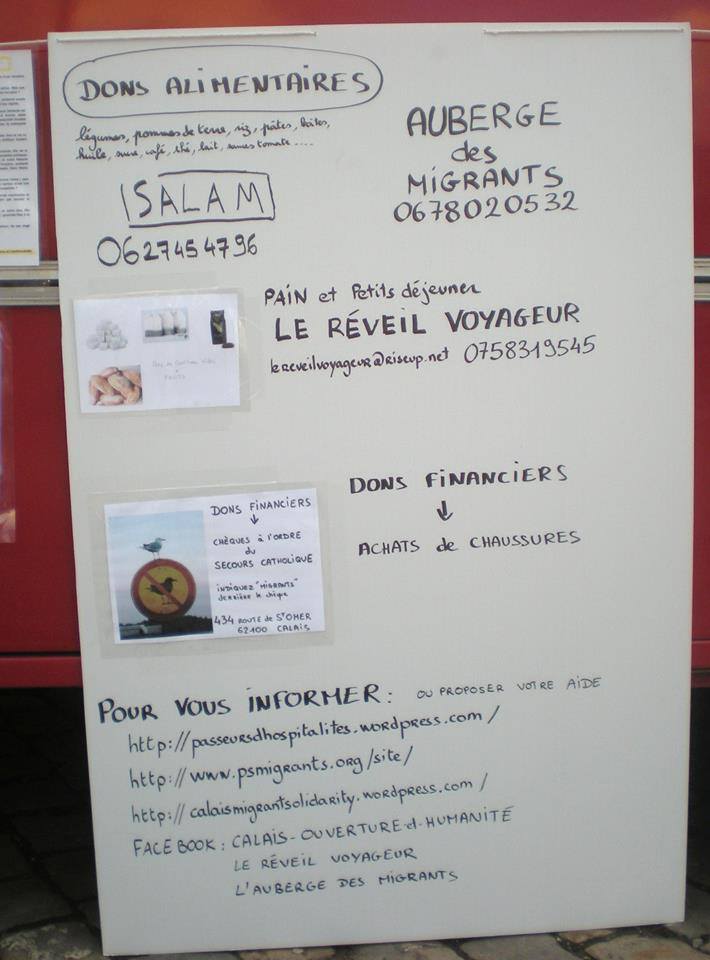 DONS ALIMENTAIRES
légumes, pommes de terre, riz, pâtes, boîtes,
huile, sucre, café, thé, lait, sauces tomate ....
SALAM
0627454796
AUBERGE
des
MIGRANTS
0678020532
PAIN et Petits déjeuner
LE RÉVEIL VOYAGEUR
lereveilvoyageur@riseup.net 0758319545
FRUITS
DONS FINANCIERS
↓
CHÈQUES à l'ORDRE
du
SECOURS CATHOLIQUE
INDIQUEZ "MIGRANTS"
derrière le chèque
434 ROUTE de St OMER
62100 CALAIS
DONS FINANCIERS
↓
ACHATS de CHAUSSURES
POUR VOUS INFORMER : OU PROPOSER VOTRE AIDE
http://passeursdhospitalites.wordpress.com/
http://www.psmigrants.org/site/
http://calaismigrantsolidarity.wordpress.com/
FACEBOOK : CALAIS-OUVERTURE-et-HUMANITÉ
LE RÉVEIL VOYAGEUR
L'AUBERGE DES MIGRANTS